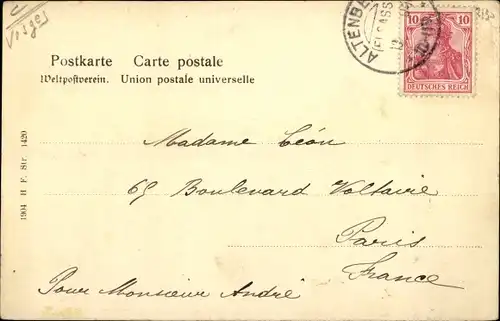 Vosges
Postkarte Carte postale
Weltpostverein. Union postale universelle
10 10
DEUTSCHES REICH
Madame Léon
69 Boulevard Voltaire
Paris
France
Pour Monsieur André
1904 H F. Str. 1420